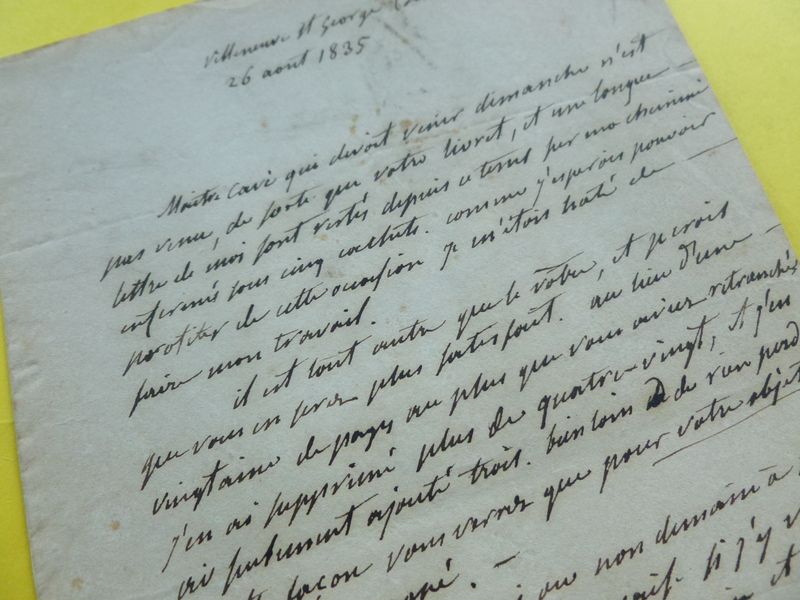 Villeneuve St George
26 aout 1835
Maitre Cavé qui devoit venir dimanche n'est
pas venu, de sorte que votre livret, et une longue
lettre de moi sont restés depuis ce tems sur ma cheminée
enfermés sous cinq cachets. comme j'esperois pouvoir
profiter de cette occasion je m'étois haté de
faire mon travail.
il est tout autre que le vôtre, et je crois
que vous en serez plus satisfait. au lieu d'une
vingtaine de pages au plus que vous aviez retranchés
j'en ai supprimé plus de quatre-vingt, et j'en
ai seulement ajouté trois. bien loin de rien perd
façon vous verrez que pour votre objet
ou non demain à
si j'y